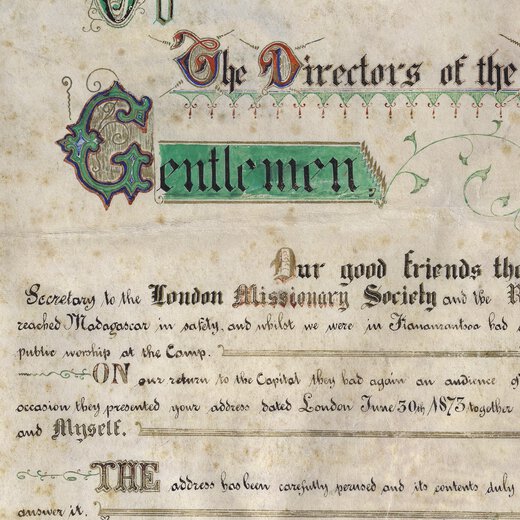 The Directors of the
Gentlemen,
Our good friends
Secretary to the London Missionary Society and the
reached Madagascar in safety, and whilst we were in Fianarantsoa had
public worship at the Camp.
ON our return to the Capital they had again an audience
occasion they presented your address dated London June 30th 1873 together
and Myself.
THE address has been carefully perused and its contents duly
answer it.